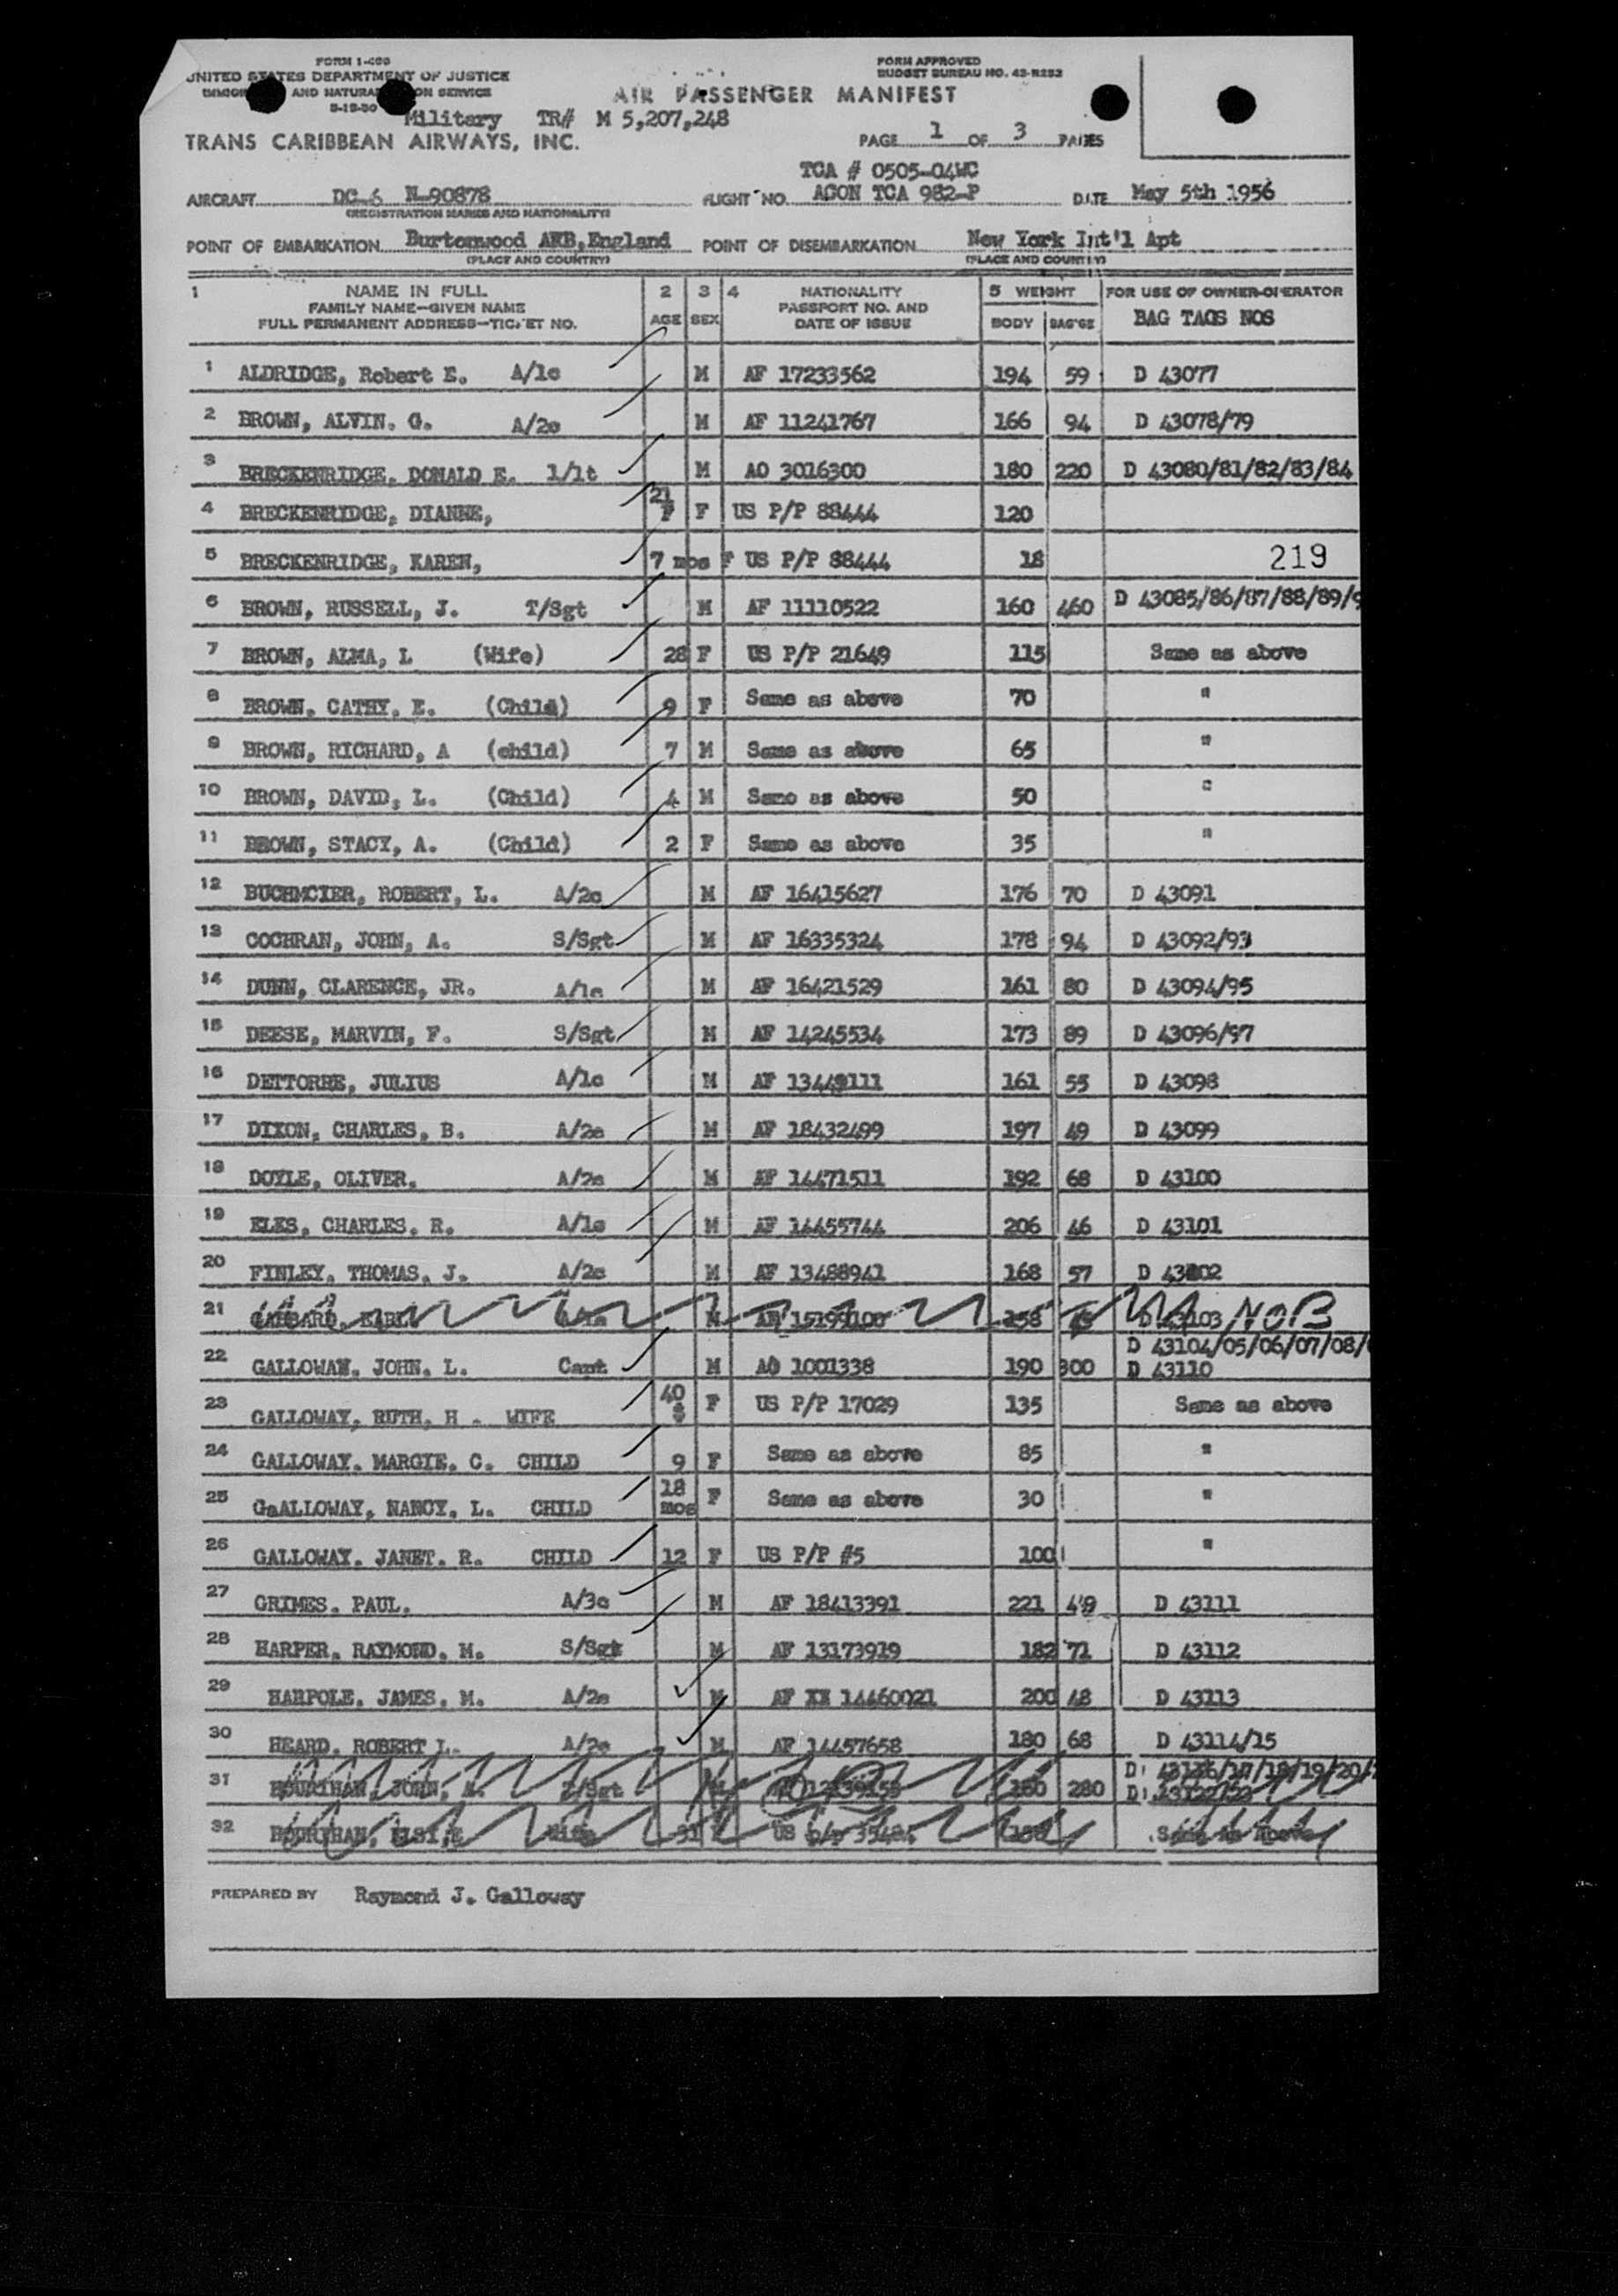 FORM I-466
UNITED STATES DEPARTMENT OF JUSTICE
AND SERVICE
Military TR# M 5,207,248
TRANS CARIBBEAN AIRWAYS, INC.
FORM APPROVED
BUDGET BUREAU NO. 43-R252
AIR PASSENGER MANIFEST
PAGE 1 OF 3 PAGES
TCA # 0505-04WC
AIRCRAFT DC-6 N-90878 FLIGHT NO. AGON TCA 982-P DATE May 5th 1956
(REGISTRATION MARKS AND NATIONALITY)
POINT OF EMBARKATION Burtonwood AFB, England POINT OF DISEMBARKATION New York Int'l Apt
(PLACE AND COUNTRY) (PLACE AND COUNTRY)
1 NAME IN FULL 2 3 4 NATIONALITY 5 WEIGHT FOR USE OF OWNER-OPERATOR
FAMILY NAME—GIVEN NAME PASSPORT NO. AND
FULL PERMANENT ADDRESS—TICKET NO. AGE SEX DATE OF ISSUE BODY BAG'GE BAG TAGS NOS
1 ALDRIDGE, Robert E. A/1c M AF 17233562 194 59 D 43077
2 BROWN, ALVIN. G. A/2c M AF 11241767 166 94 D 43078/79
3 BRECKENRIDGE, DONALD E. 1/lt M AO 3016300 180 220 D 43080/81/82/83/84
4 BRECKENRIDGE, DIANNE, 21 F US P/P 88444 120
5 BRECKENRIDGE, KAREN, 7 mos F US P/P 88444 18 219
6 BROWN, RUSSELL, J. T/Sgt M AF 11110522 160 460 D 43085/86/87/88/89/9
7 BROWN, ALMA, L (Wife) 28 F US P/P 21649 115 Same as above
8 BROWN, CATHY, E. (Child) 9 F Same as above 70 "
9 BROWN, RICHARD, A (child) 7 M Same as above 65 "
10 BROWN, DAVID, L. (Child) 4 M Same as above 50 "
11 BROWN, STACY, A. (Child) 2 F Same as above 35 "
12 BUCHMCIER, ROBERT, L. A/2c M AF 16415627 176 70 D 43091
13 COCHRAN, JOHN, A. S/Sgt M AF 16335324 178 94 D 43092/93
14 DUNN, CLARENCE, JR. A/1c M AF 16421529 161 80 D 43094/95
15 DEESE, MARVIN, F. S/Sgt M AF 14245534 173 89 D 43096/97
16 DETTORRE, JULIUS A/1c M AF 13449111 161 55 D 43098
17 DIXON, CHARLES, B. A/2c M AF 18432499 197 49 D 43099
18 DOYLE, OLIVER. A/2c M AF 14471511 192 68 D 43100
19 ELES, CHARLES. R. A/1c M AF 14455744 206 46 D 43101
20 FINLEY, THOMAS, J. A/2c M AF 13488941 168 57 D 43102
21 M 158 NOB
D 43104/05/06/07/08/
22 GALLOWAY, JOHN. L. Capt M AO 1001338 190 300 D 43110
23 GALLOWAY, RUTH, H . WIFE 40 F US P/P 17029 135 Same as above
24 GALLOWAY. MARGIE. C. CHILD 9 F Same as above 85 "
25 GaALLOWAY, NANCY, L. CHILD 18 mos F Same as above 30 "
26 GALLOWAY. JANET. R. CHILD 12 F US P/P #5 100 "
27 GRIMES. PAUL. A/3c M AF 18413391 221 49 D 43111
28 HARPER, RAYMOND, M. S/Sgt M AF 13173919 182 71 D 43112
29 HARPOLE, JAMES, M. A/2c M AF XX 14460021 200 48 D 43113
30 HEARD. ROBERT L. A/2c M AF 14457658 180 68 D 43114/15
31 HOURIHAN, JOHN, 280
32 HOURIHAN, US P/P Same as Above
PREPARED BY Raymond J. Galloway